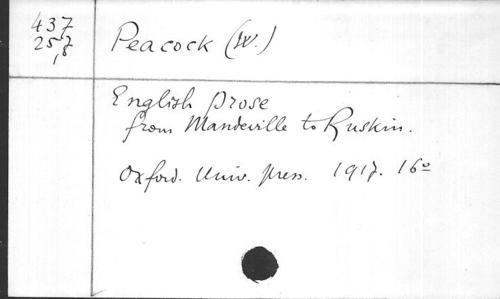 437
257
,8
Peacock (W.)
English prose
from Mandeville to Ruskin.
Oxford. Univ. press. 1917. 16º